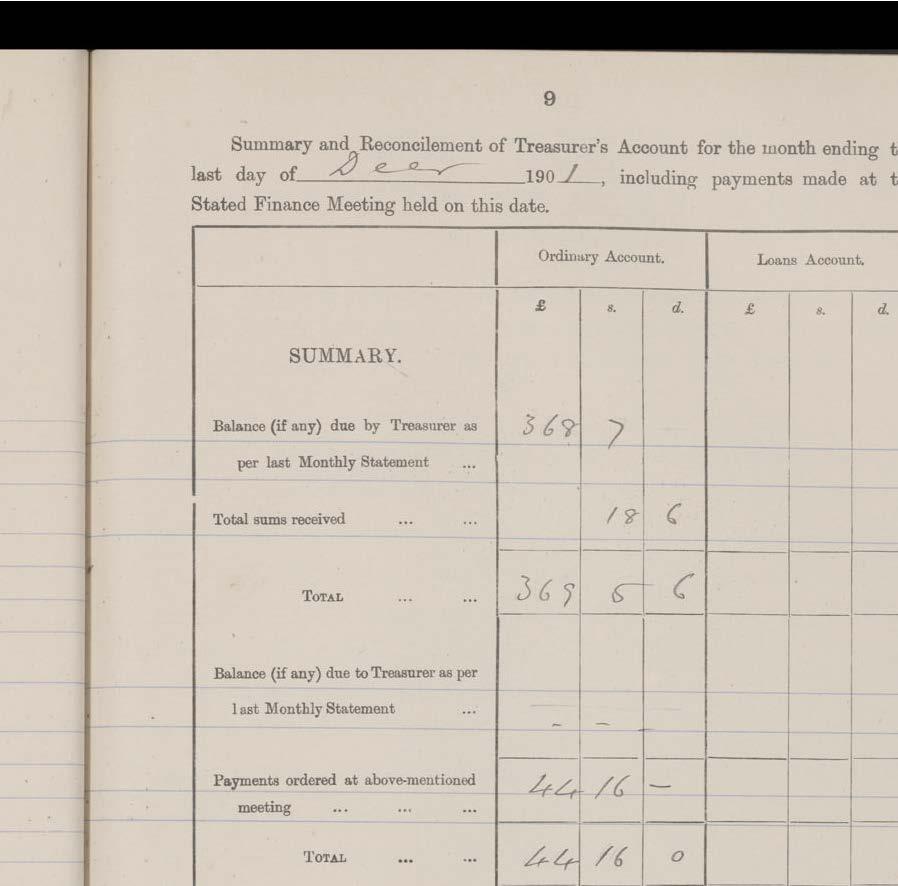 9
Summary and Reconcilement of Treasurer's Account for the month ending t
last day of Decr 1901, including payments made at t
Stated Finance Meeting held on this date.
Ordinary Account. Loans Account.
£ s. d. £ s. d.
SUMMARY.
Balance (if any) due by Treasurer as 368 7
per last Monthly Statement ...
Total sums received ... ... 18 6
TOTAL ... ... 369 5 6
Balance (if any) due to Treasurer as per
last Monthly Statement ... – – –
Payments ordered at above-mentioned 44 16 –
meeting ... ... ...
TOTAL ... ... 44 16 0